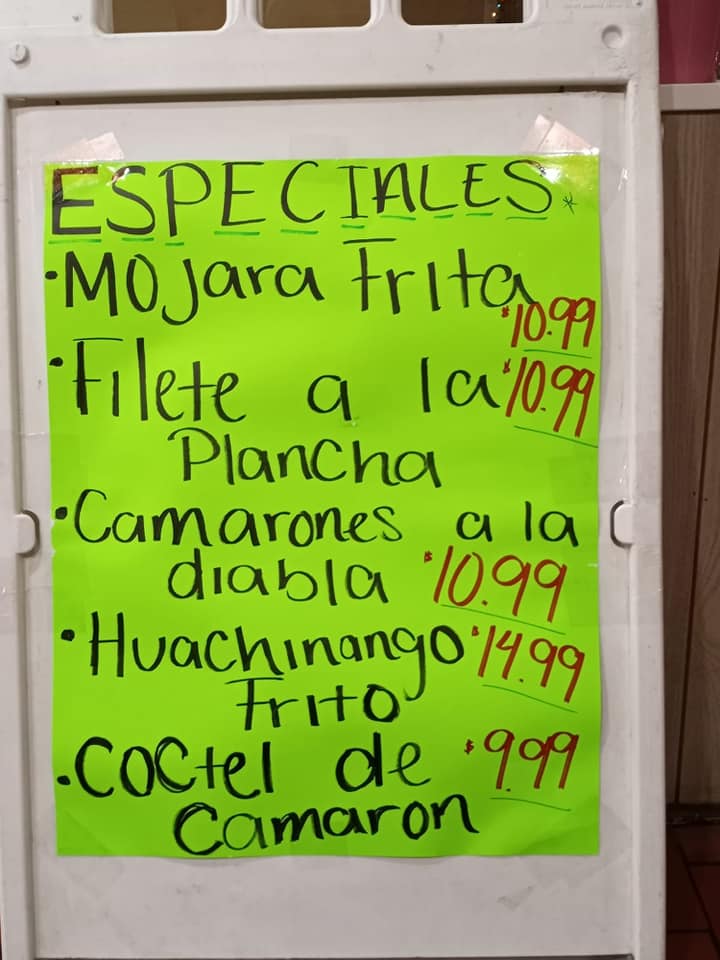 ESPECIALES*
• Mojara Frita
$10.99
• Filete a la $10.99
Plancha
• Camarones a la
diabla $10.99
• Huachinango $14.99
Frito
• Coctel de $9.99
Camaron